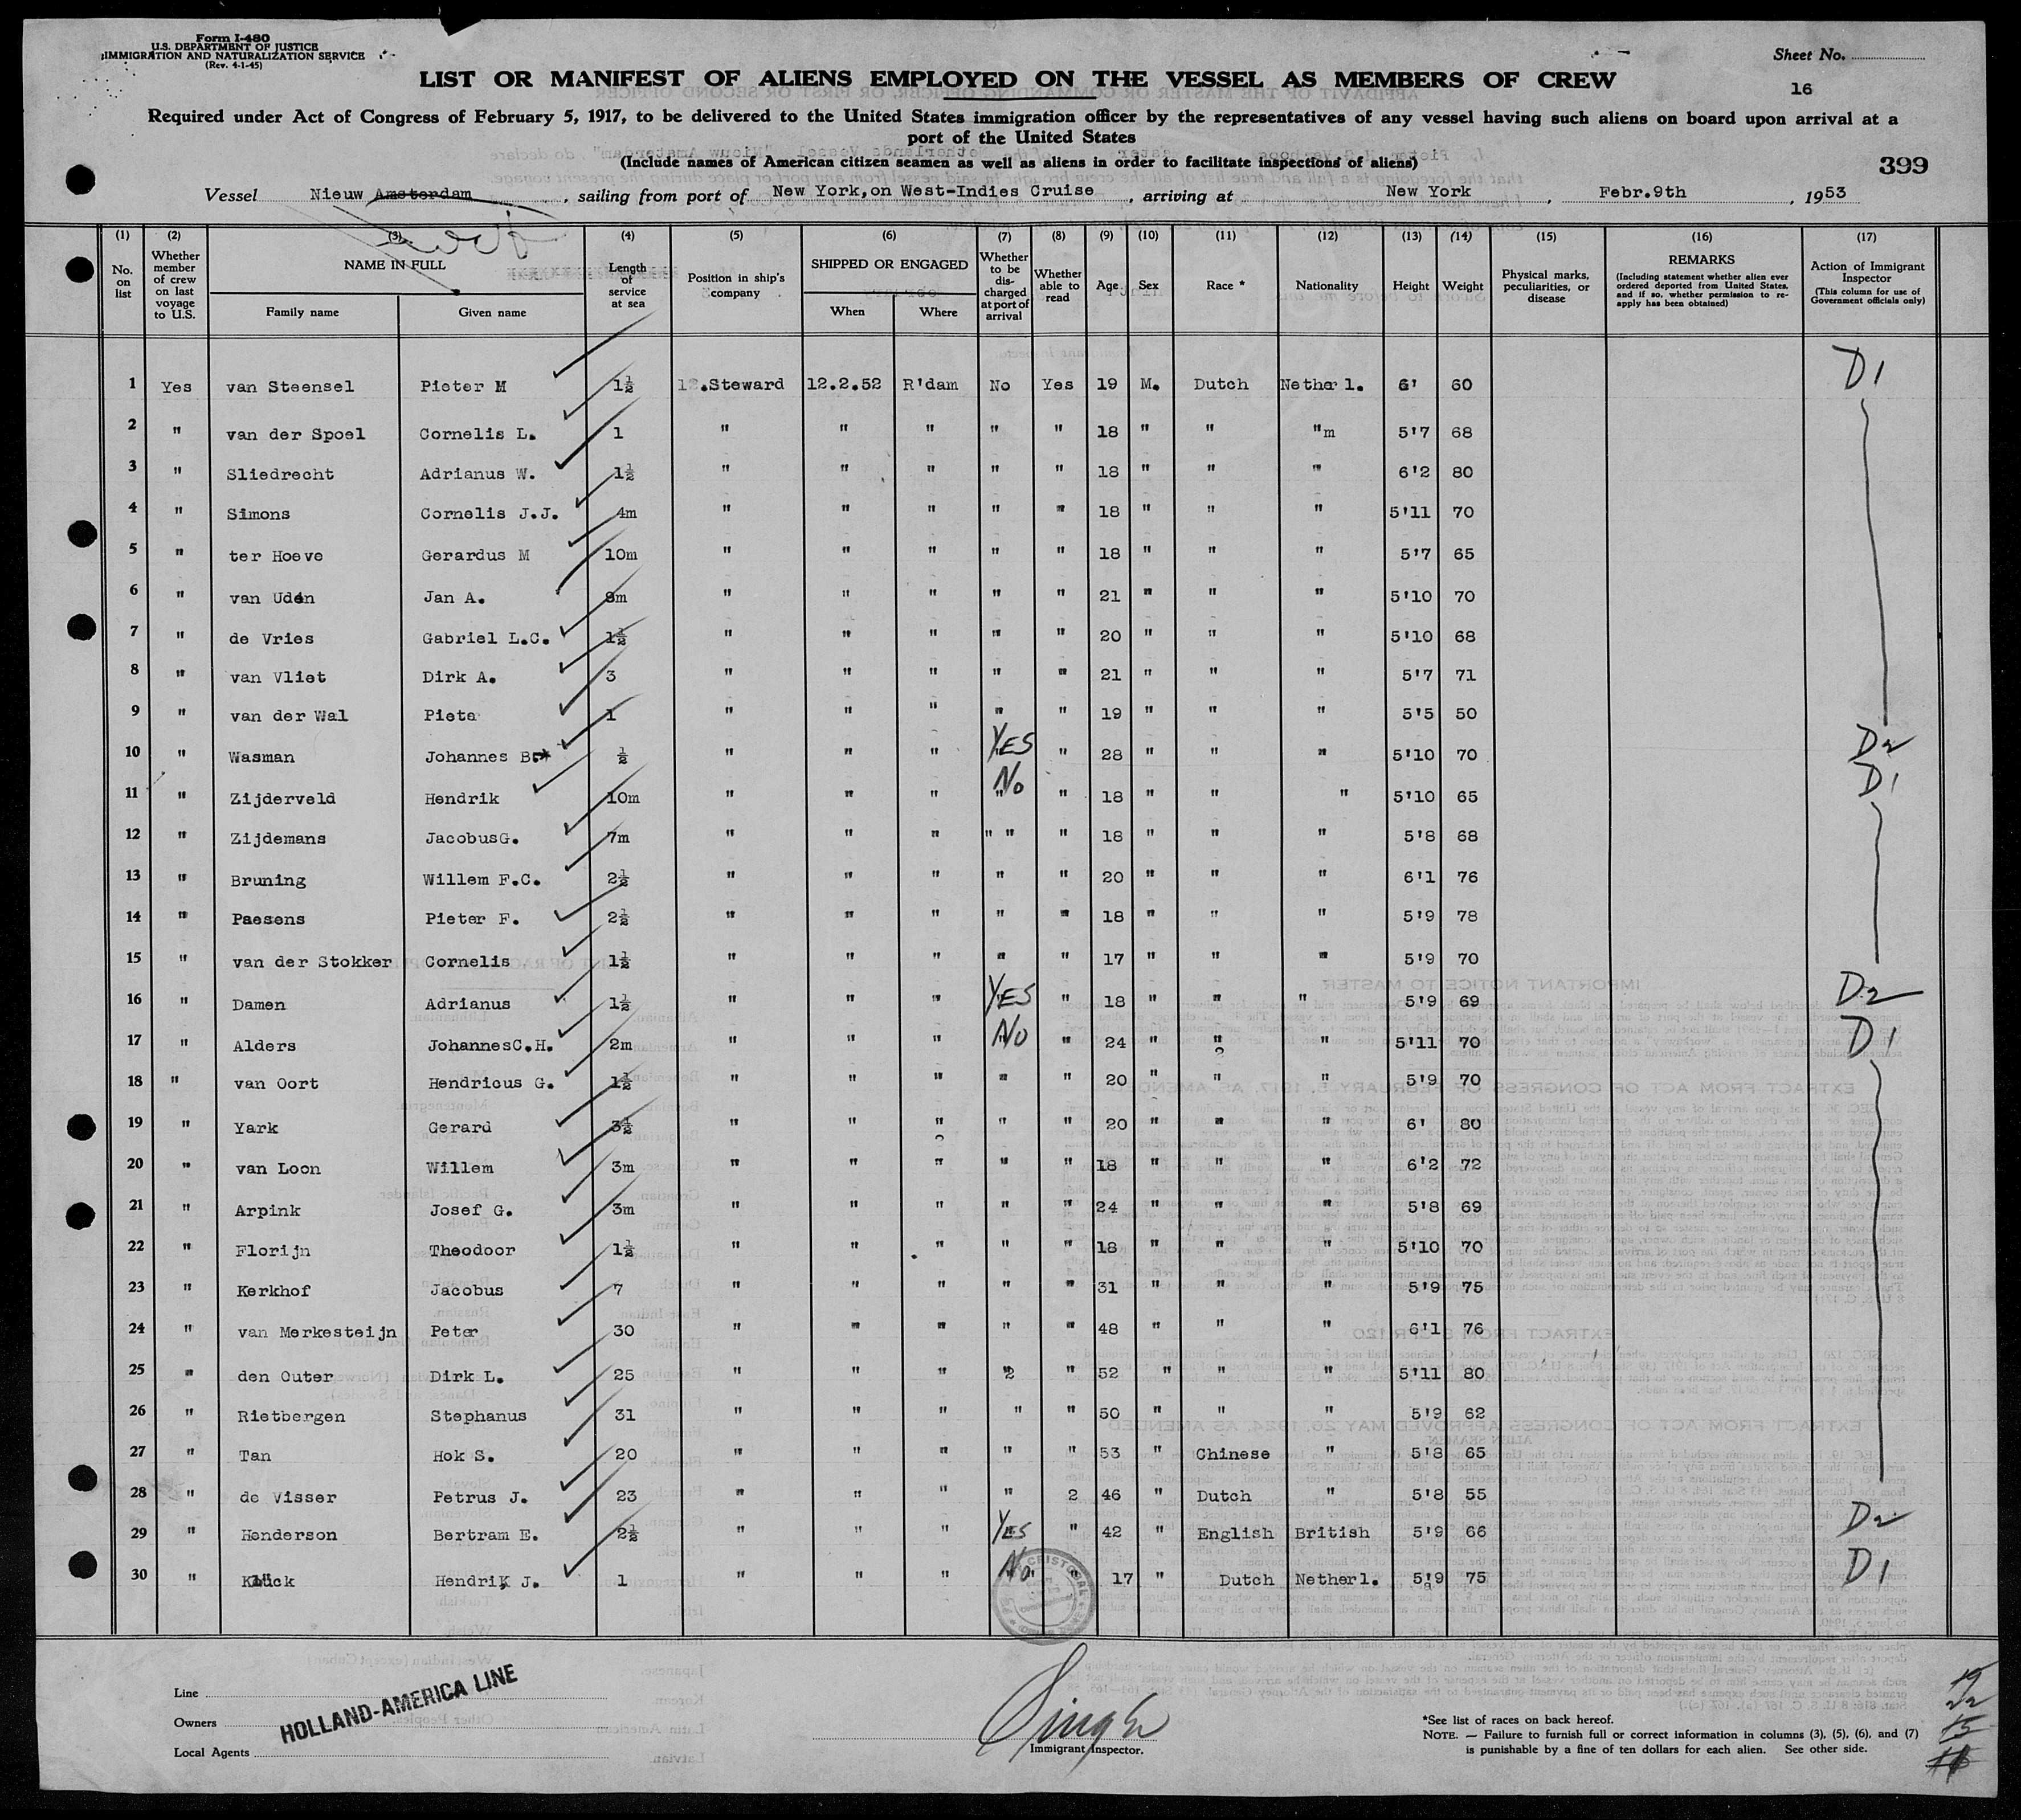 Form I-480
U.S. DEPARTMENT OF JUSTICE
IMMIGRATION AND NATURALIZATION SERVICE
(Rev. 4-1-45)
Sheet No.
16
LIST OR MANIFEST OF ALIENS EMPLOYED ON THE VESSEL AS MEMBERS OF CREW
Required under Act of Congress of February 5, 1917, to be delivered to the United States immigration officer by the representatives of any vessel having such aliens on board upon arrival at a
port of the United States
(Include names of American citizen seamen as well as aliens in order to facilitate inspections of aliens)
399
Vessel Nieuw Amsterdam, sailing from port of New York, on West-Indies Cruise, arriving at New York, Febr.9th, 1953
(1) (2) (3) (4) (5) (6) (7) (8) (9) (10) (11) (12) (13) (14) (15) (16) (17)
No. on list
Whether member of crew on last voyage to U.S.
NAME IN FULL
Family name Given name
Length of service at sea
Position in ship's company
SHIPPED OR ENGAGED
When Where
Whether to be discharged at port of arrival
Whether able to read
Age Sex Race * Nationality Height Weight
Physical marks, peculiarities, or disease
REMARKS
(Including statement whether alien ever ordered deported from United States, and if so, whether permission to reapply has been obtained)
Action of Immigrant Inspector
(This column for use of Government officials only)
1 Yes van Steensel Pieter M 1½ .Steward 12.2.52 R'dam No Yes 19 M. Dutch Netherl. 6' 60 D1
2 " van der Spoel Cornelis L. 1 " " " " " 18 " " "m 5'7 68
3 " Sliedrecht Adrianus W. 1½ " " " " " 18 " " " 6'2 80
4 " Simons Cornelis J.J. 4m " " " " " 18 " " " 5'11 70
5 " ter Hoeve Gerardus M 10m " " " " " 18 " " " 5'7 65
6 " van Uden Jan A. 9m " " " " " 21 " " " 5'10 70
7 " de Vries Gabriel L.C. 1½ " " " " " 20 " " " 5'10 68
8 " van Vliet Dirk A. 3 " " " " " 21 " " " 5'7 71
9 " van der Wal Piete 1 " " " " " 19 " " " 5'5 50
10 " Wasman Johannes B. ½ " " " YES " 28 " " " 5'10 70 D2
11 " Zijderveld Hendrik 10m " " " No " 18 " " " 5'10 65 D1
12 " Zijdemans JacobusG. 7m " " " " " " 18 " " " 5'8 68
13 " Bruning Willem F.C. 2½ " " " " " 20 " " " 6'1 76
14 " Paesens Pieter F. 2½ " " " " " 18 " " " 5'9 78
15 " van der Stokker Cornelis 1½ " " " " " 17 " " " 5'9 70
16 " Damen Adrianus 1½ " " " YES " 18 " " " 5'9 69 D2
17 " Alders JohannesC.H. 2m " " " NO " 24 " " " 5'11 70 D1
18 " van Oort Hendricus G. 1½ " " " " " 20 " " " 5'9 70
19 " Yark Gerard 3½ " " " " " 20 " " " 6' 80
20 " van Loon Willem 3m " " " " " 18 " " " 6'2 72
21 " Arpink Josef G. 3m " " " " " 24 " " " 5'8 69
22 " Florijn Theodoor 1½ " " " " " 18 " " " 5'10 70
23 " Kerkhof Jacobus 7 " " " " " 31 " " " 5'9 75
24 " van Merkesteijn Peter 30 " " " " " 48 " " " 6'1 76
25 " den Outer Dirk L. 25 " " " " " 52 " " " 5'11 80
26 " Rietbergen Stephanus 31 " " " " " 50 " " " 5'9 62
27 " Tan Hok S. 20 " " " " " 53 " Chinese " 5'8 65
28 " de Visser Petrus J. 23 " " " " 2 46 " Dutch " 5'8 55
29 " Henderson Bertram E. 2½ " " " YES " 42 " English British 5'9 66 D2
30 " Klück Hendrik J. 1 " " " No " 17 " Dutch Netherl. 5'9 75 D1
CRISTOBAL
Line
Owners
Local Agents
HOLLAND-AMERICA LINE
Immigrant Inspector.
*See list of races on back hereof.
NOTE. — Failure to furnish full or correct information in columns (3), (5), (6), and (7)
is punishable by a fine of ten dollars for each alien. See other side.